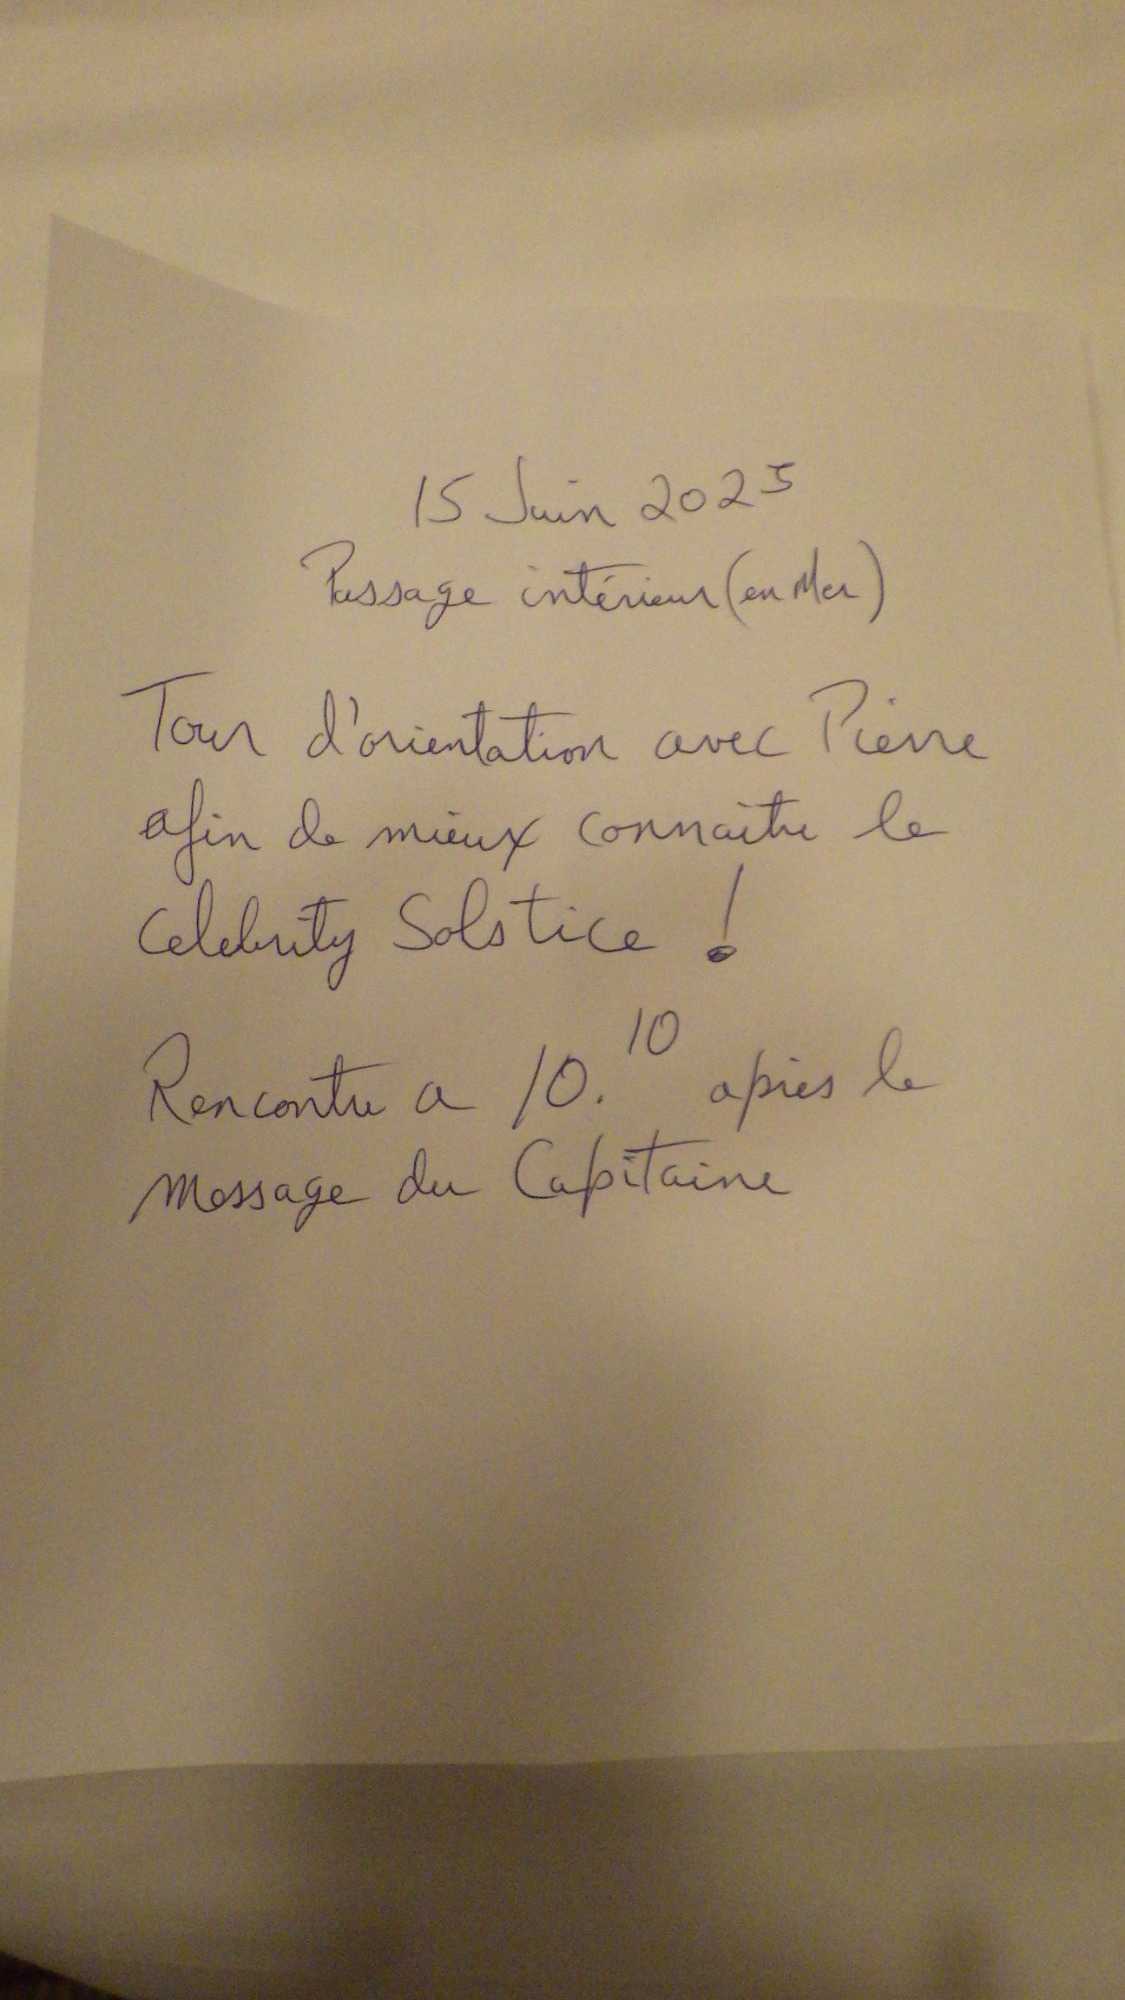 15 Juin 2025
Passage intérieur (en Mer)
Tour d'orientation avec Pierre
afin de mieux connaitre le
Celebrity Solstice !
Rencontre a 10.10 après le
Message du Capitaine